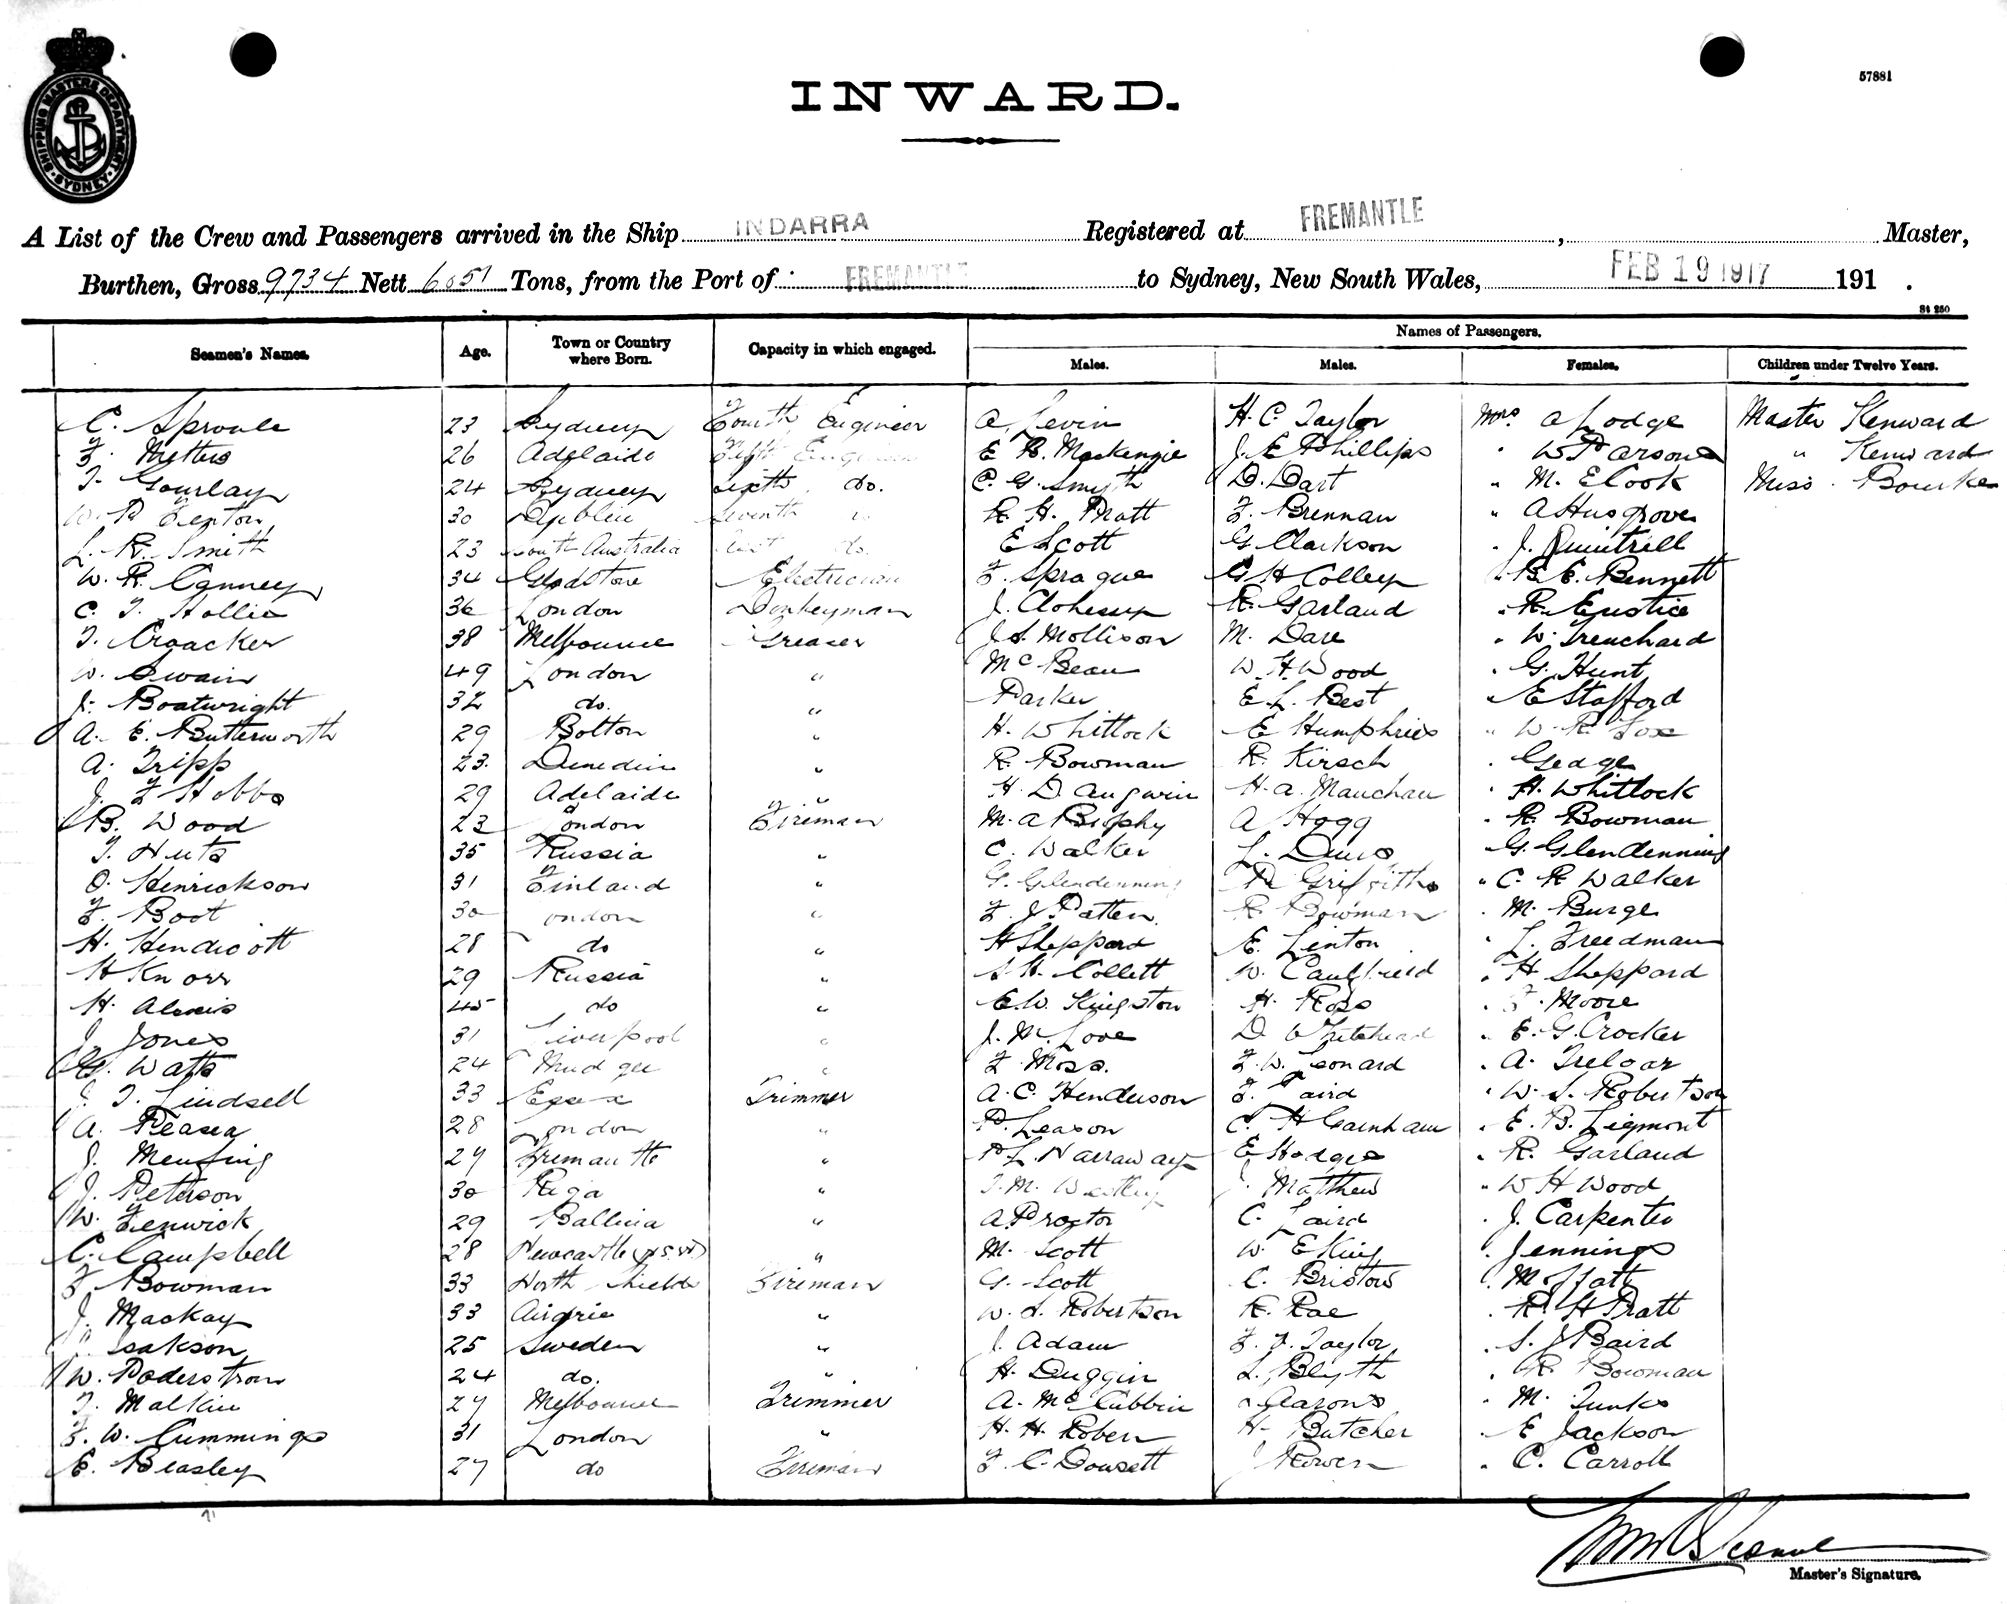 57881
SHIPPING MASTERS DEPARTMENT
SYDNEY
INWARD.
A List of the Crew and Passengers arrived in the Ship INDARRA Registered at FREMANTLE , Master,
Burthen, Gross 9734 Nett 6051 Tons, from the Port of FREMANTLE to Sydney, New South Wales, FEB 19 1917 191 .
St 250
Names of Passengers.
Seamen's Names. Age. Town or Country where Born. Capacity in which engaged. Males. Males. Females. Children under Twelve Years.
C. Sproule 23 Sydney Fourth Engineer A Levin H. C. Taylor Mrs A Lodge Master Kenward
F. Metters 26 Adelaide Fifth Engineer E B. Mackenzie J. E Phillips " W Parsons " Kenward
T. Gourlay 24 Sydney Sixth do. C. G. Smyth D. Dart " M. E Cook Miss Bourke
W. P. Fenton 30 Dublin Seventh R H. Pratt F. Brennan " A Husgrove
L. R. Smith 23 South Australia do. E Scott G Clarkson " J. Quintrell
W. R. Canney 34 Gladstone Electrician F. Sprague G H Colley " B E. Bennett
C. T. Hollie 36 London Donkeyman J. Clohessy R. Garland " R. Eustice
T. Croacker 38 Melbourne Greaser J. S. Mollison M. Dare " W. Trenchard
W. Swain 49 London " Mc Bean W. H. Wood " G. Hunt
J. Boatwright 32 do. " Parker E. L. Best " E Stafford
A. E. Butterworth 29 Bolton " H. Whitlock E Humphries " W. R. Fox
A. Tripp 23 Dunedin " R. Bowman R. Kirsch " Gedge
J. F Hobbs 29 Adelaide " H. D Angwin H. A. Manchan " H. Whitlock
B. Wood 23 London Fireman M. A Brophy A Hogg " R. Bowman
T. Huts 35 Russia " C. Walker L. Davis " G. Glendenning
O. Henrickson 31 Finland " G. Glendenning P. Griffiths " C. R Walker
F. Boot 30 London " F. J Patten R. Bowman " M. Burge
H. Hendicott 28 do " H Sheppard E. Linton " L. Freedman
H Knorr 29 Russia " S H. Collett W. Caulfield " H Sheppard
H. Alexis 45 do " E. W. Kingston H. Ross " F. Moore
J. Jones 31 Liverpool " J. M. Love D Whitehead " E. G. Crocker
G. Watts 24 Mudgee " F. Moss. F. W. Leonard " A. Treloar
J. T. Lindsell 33 Essex Trimmer A. C. Henderson F. Laird " W. S. Robertson
A. Reasea 28 London " P. Leason C. H Gainham " E. B. Liepmont
J. Mensing 27 Fremantle " P L. Narraway E Hodges " R. Garland
J. Peterson 30 Riga " T. M. Westley J. Matthew " W H Wood
W. Fenwick 29 Ballina " A Proctor C. Laird " J. Carpenter
C. Campbell 28 Newcastle (N.S.W.) " M. Scott W. E King " Jennings
F. Bowman 33 North Shields Fireman G. Scott C. Bristow " Moffatt
J. Mackay 33 Airdrie " W. S. Robertson R. Rae " R. H Pratt
Isakson 25 Sweden " J. Adam F. J. Taylor " S. J Baird
W. Soderstrom 24 do. " H. Duggin L. Blyth " R. Bowman
T. Malkin 27 Melbourne Trimmer A. Mc Cubbin Aarons " M. Tunks
F. W. Cummings 31 London " H. H. Robers H. Butcher " E Jackson
E. Beasley 27 do Fireman F. C. Dowsett J Rowen " C. Carroll
Master's Signature.